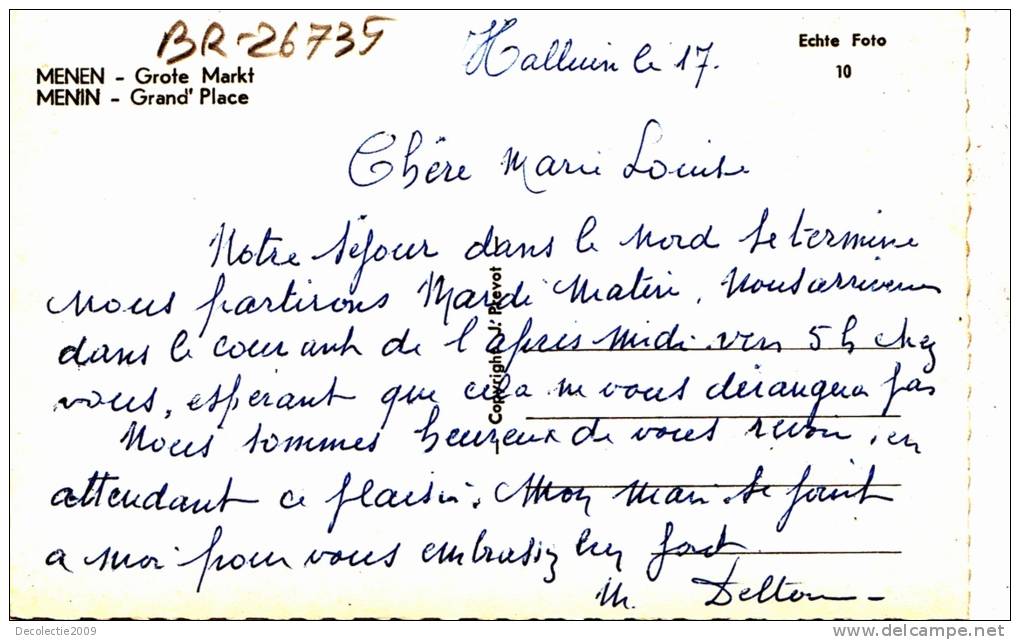 BR-26735
MENEN - Grote Markt
MENIN - Grand' Place
Echte Foto
10
Halluin le 17.
Chère Marie Louise
Notre séjour dans le Nord se termine
nous partirons Mardi Matin. Nous arriverons
dans le courant de l'après midi vers 5h chez
vous, espérant que cela ne vous dérangera pas
Nous sommes heureux de vous revoir, en
attendant ce plaisir, Mon Mari se joint
a moi pour vous embrasser bien fort
M. Deltour
Copyright J. Prevot
Decolectie2009
delcampe.net